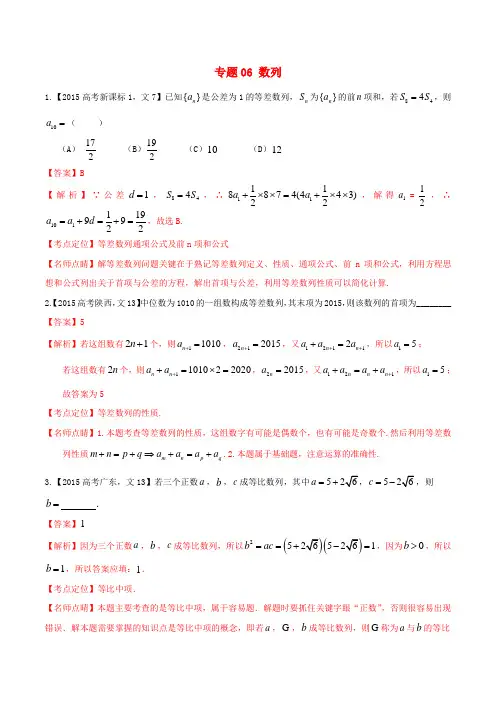 专题06 数列
1.【2015高考新课标1，文7】已知{aₙ}是公差为1的等差数列，Sₙ为{aₙ}的前n项和，若S₈=4S₄，则
a₁₀=（ ）
（A）17/2 （B）19/2 （C）10 （D）12
【答案】B
【解析】∵公差d=1，S₈=4S₄，∴8a₁+1/2×8×7=4(4a₁+1/2×4×3)，解得a₁=1/2，∴
a₁₀=a₁+9d=1/2+9=19/2，故选B.
【考点定位】等差数列通项公式及前n项和公式
【名师点睛】解等差数列问题关键在于熟记等差数列定义、性质、通项公式、前n项和公式，利用方程思
想和公式列出关于首项与公差的方程，解出首项与公差，利用等差数列性质可以简化计算.
2.【2015高考陕西，文13】中位数为1010的一组数构成等差数列，其末项为2015，则该数列的首项为________
【答案】5
【解析】若这组数有2n+1个，则aₙ₊₁=1010，a₂ₙ₊₁=2015，又a₁+a₂ₙ₊₁=2aₙ₊₁，所以a₁=5；
若这组数有2n个，则aₙ+aₙ₊₁=1010×2=2020，a₂ₙ=2015，又a₁+a₂ₙ=aₙ+aₙ₊₁，所以a₁=5；
故答案为5
【考点定位】等差数列的性质.
【名师点睛】1.本题考查等差数列的性质，这组数字有可能是偶数个，也有可能是奇数个.然后利用等差数
列性质m+n=p+q⇒aₘ+aₙ=aₚ+a_q.2.本题属于基础题，注意运算的准确性.
3.【2015高考广东，文13】若三个正数a，b，c成等比数列，其中a=5+2√6，c=5-2√6，则
b= .
【答案】1
【解析】因为三个正数a，b，c成等比数列，所以b²=ac=(5+2√6)(5-2√6)=1，因为b>0，所以
b=1，所以答案应填：1.
【考点定位】等比中项.
【名师点睛】本题主要考查的是等比中项，属于容易题．解题时要抓住关键字眼“正数”，否则很容易出现
错误．解本题需要掌握的知识点是等比中项的概念，即若a，G，b成等比数列，则G称为a与b的等比